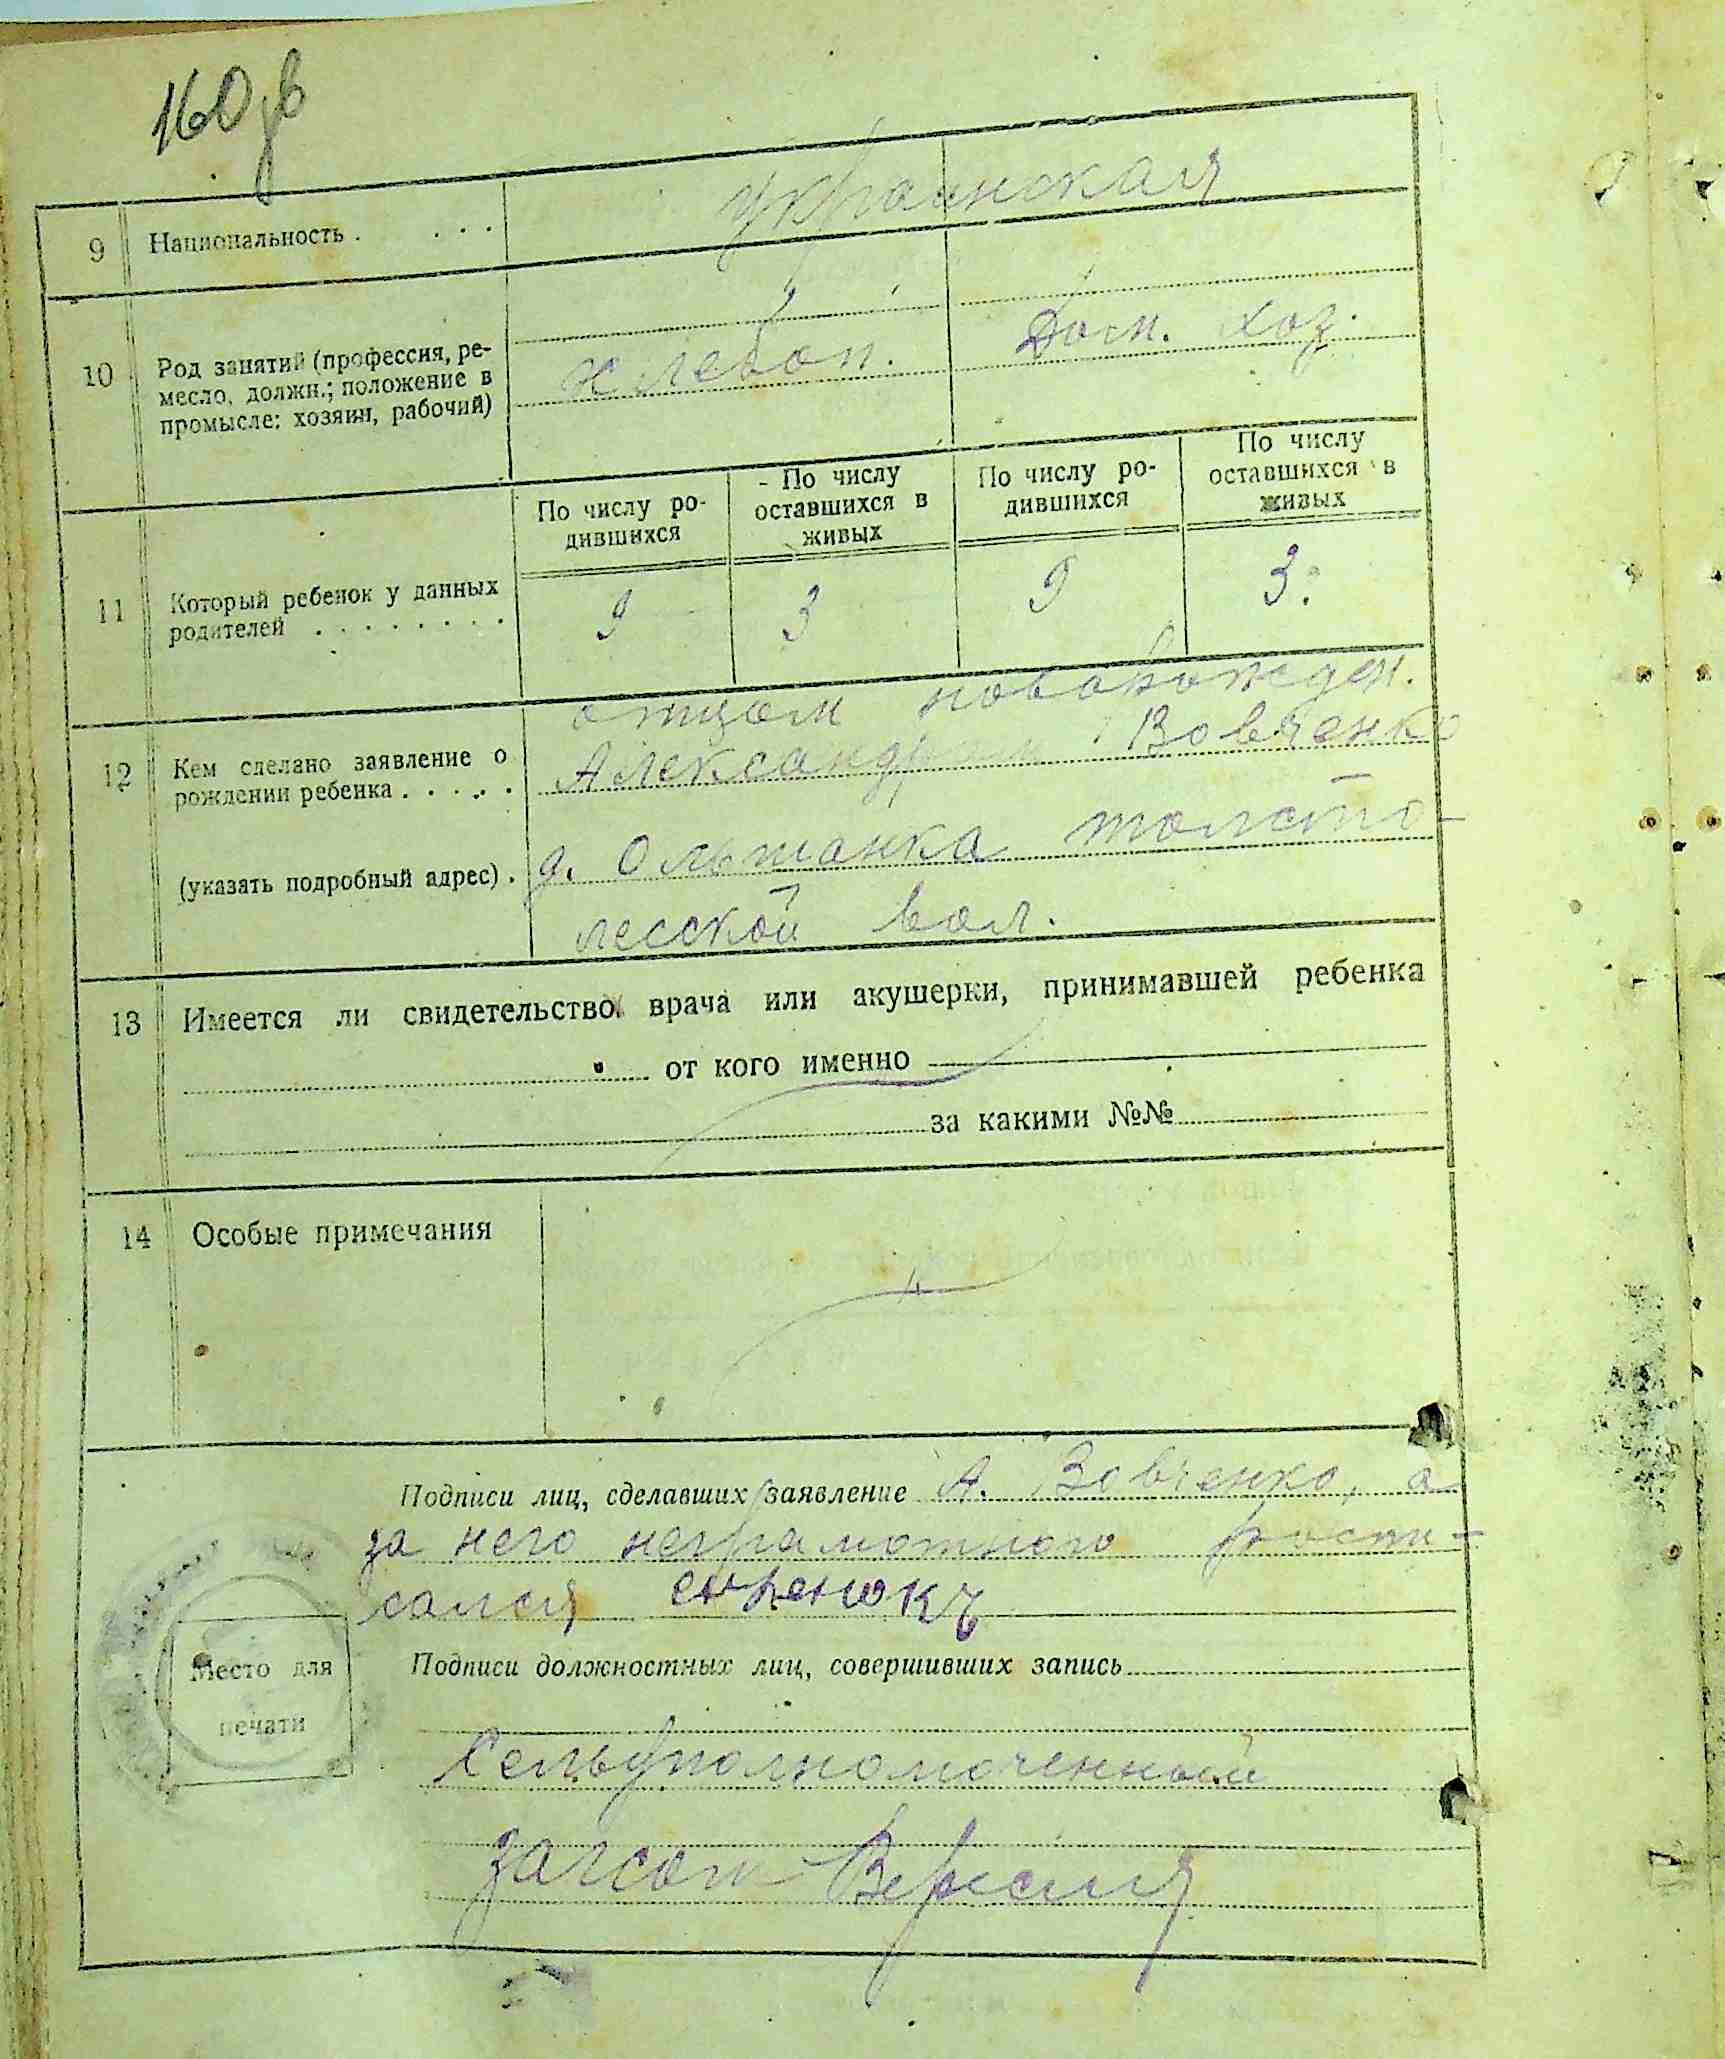 160 об
9 Национальность . . . . украинская
10 Род занятий (профессия, ре-
месло, должн.; положение в
промысле: хозяин, рабочий)
хлебоп. Дом. хоз.
По числу ро-
дившихся
- По числу
оставшихся в
живых
По числу ро-
дившихся
По числу
оставшихся в
живых
11 Который ребенок у данных
родителей . . . . . . . .
9 3 9 3.
12 Кем сделано заявление о
рождении ребенка . . . . .
(указать подробный адрес) .
отцом новорожден.
Александром Вовченко
д. Ольшанка толсто-
лесской вол.
13 Имеется ли свидетельство врача или акушерки, принимавшей ребенка
от кого именно
за какими №№
14 Особые примечания
Подписи лиц, сделавших заявление А. Вовченко, а
за него неграмотного роспи-
сался
Место для
печати
Подписи должностных лиц, совершивших запись
Сельуполномоченный